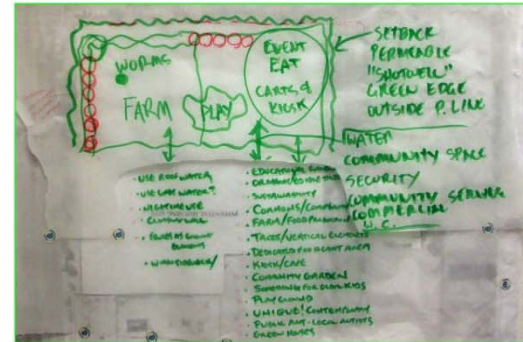 WORMS
FARM
PLAY
EVENT
EAT
CARTS &
KIOSK
SETBACK
PERMEABLE
"SHOTWELL"
GREEN EDGE
OUTSIDE P. LINE
WATER
COMMUNITY SPACE
SECURITY
COMMUNITY SERVING
COMMERCIAL
W.C.
• USE ROOF WATER
• USE WATER?
• NIGHTTIME USE
• EDUCATIONAL
SUSTAINABILITY
• COMMONS/
• FARM/FOOD PRODUCTION
• TREES/VERTICAL ELEMENTS
• DEDICATED AREA
• KIOSK/CAFE
• COMMUNITY GARDEN
SOMETHING FOR OLDER KIDS
• PLAYGROUND
• UNIQUE! CONTEMPORARY
• PUBLIC ART - LOCAL ARTISTS
GREEN HOUSES